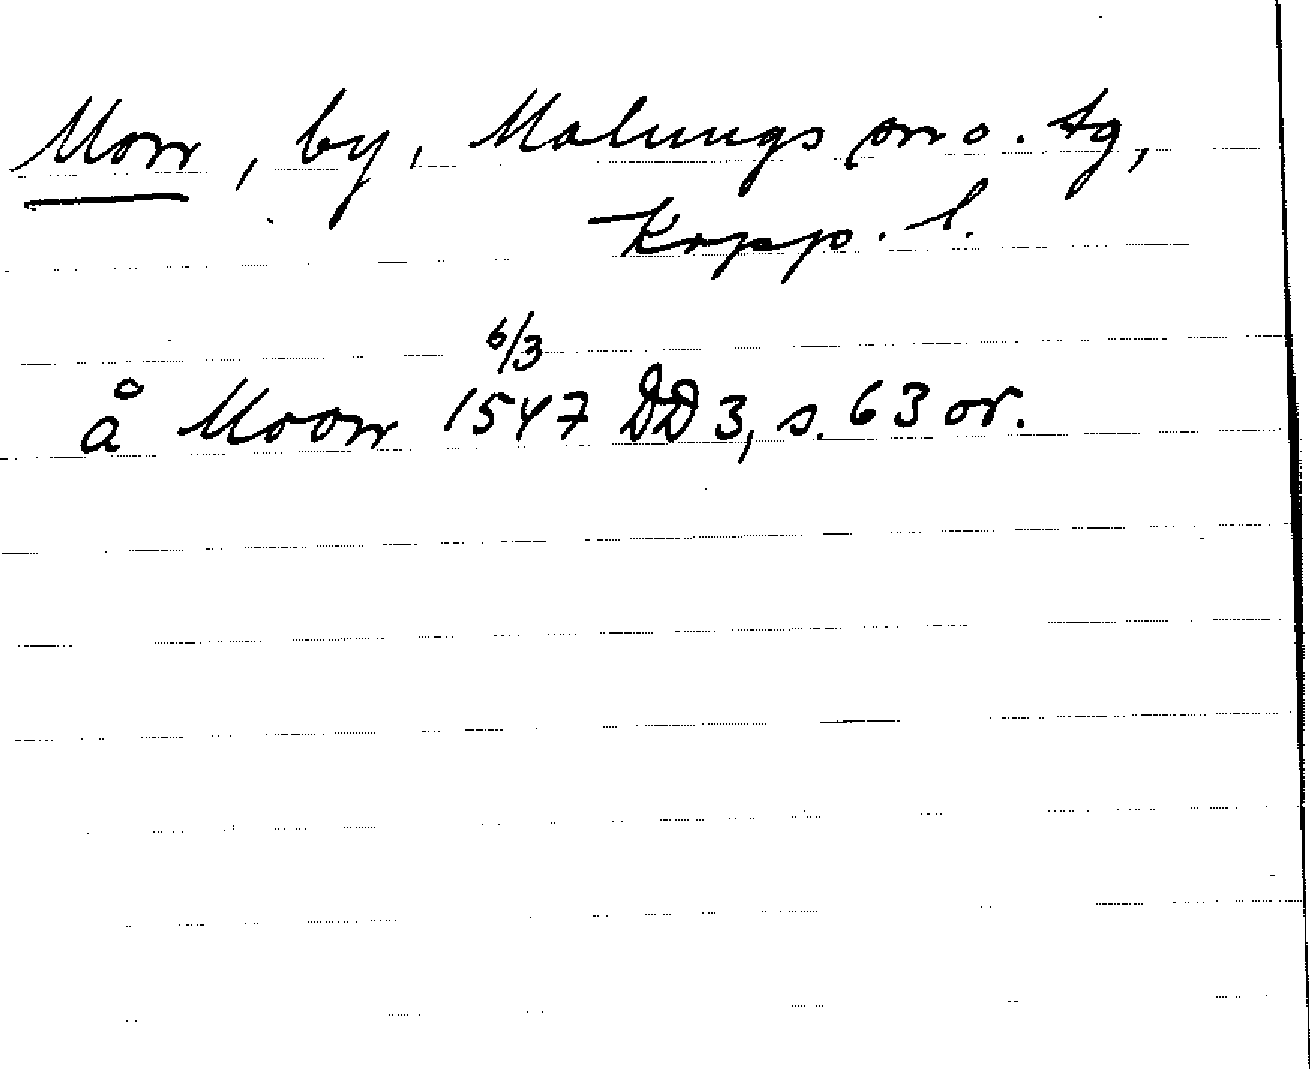 Mon, by, Malungs sn o. tg,
Kopp. l.
6/3
å Moon 1547 DD 3, s. 63 or.